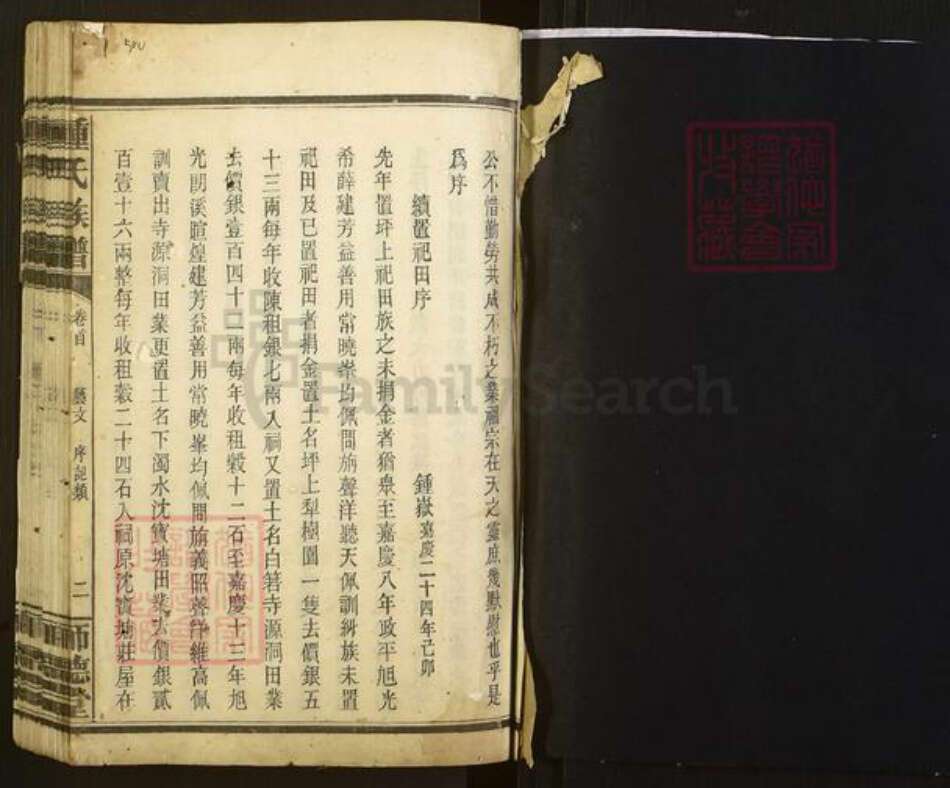 公不惜勤勞共成不朽之業祖宗在天之靈庶幾默慰也乎是
爲序
續置祀田序 鍾嶽嘉慶二十四年己卯
先年置坪上祀田族之未捐金者猶衆至嘉慶八年政平旭光
希薛建芳益善用常曉峯均佩問旃聲洋聽天佩訓糾族未置
祀田及已置祀田者捐金置土名坪上犁樹園一隻去價銀五
十三兩每年收陳租銀七兩入祠又置土名白箬寺源洞田業
去價銀壹百四十二兩每年收租穀十二石至嘉慶十三年旭
光朗溪暄煌建芳益善用常曉峯均佩問旃義昭聲洋維高佩
訓賣出寺源洞田業更置土名下濁水沈寶塘田業去價銀貳
百壹十六兩整每年收租穀二十四石入祠原沈寶塘莊屋在
鍾氏族譜 卷首 藝文 序記類 二 師德堂
FamilySearch